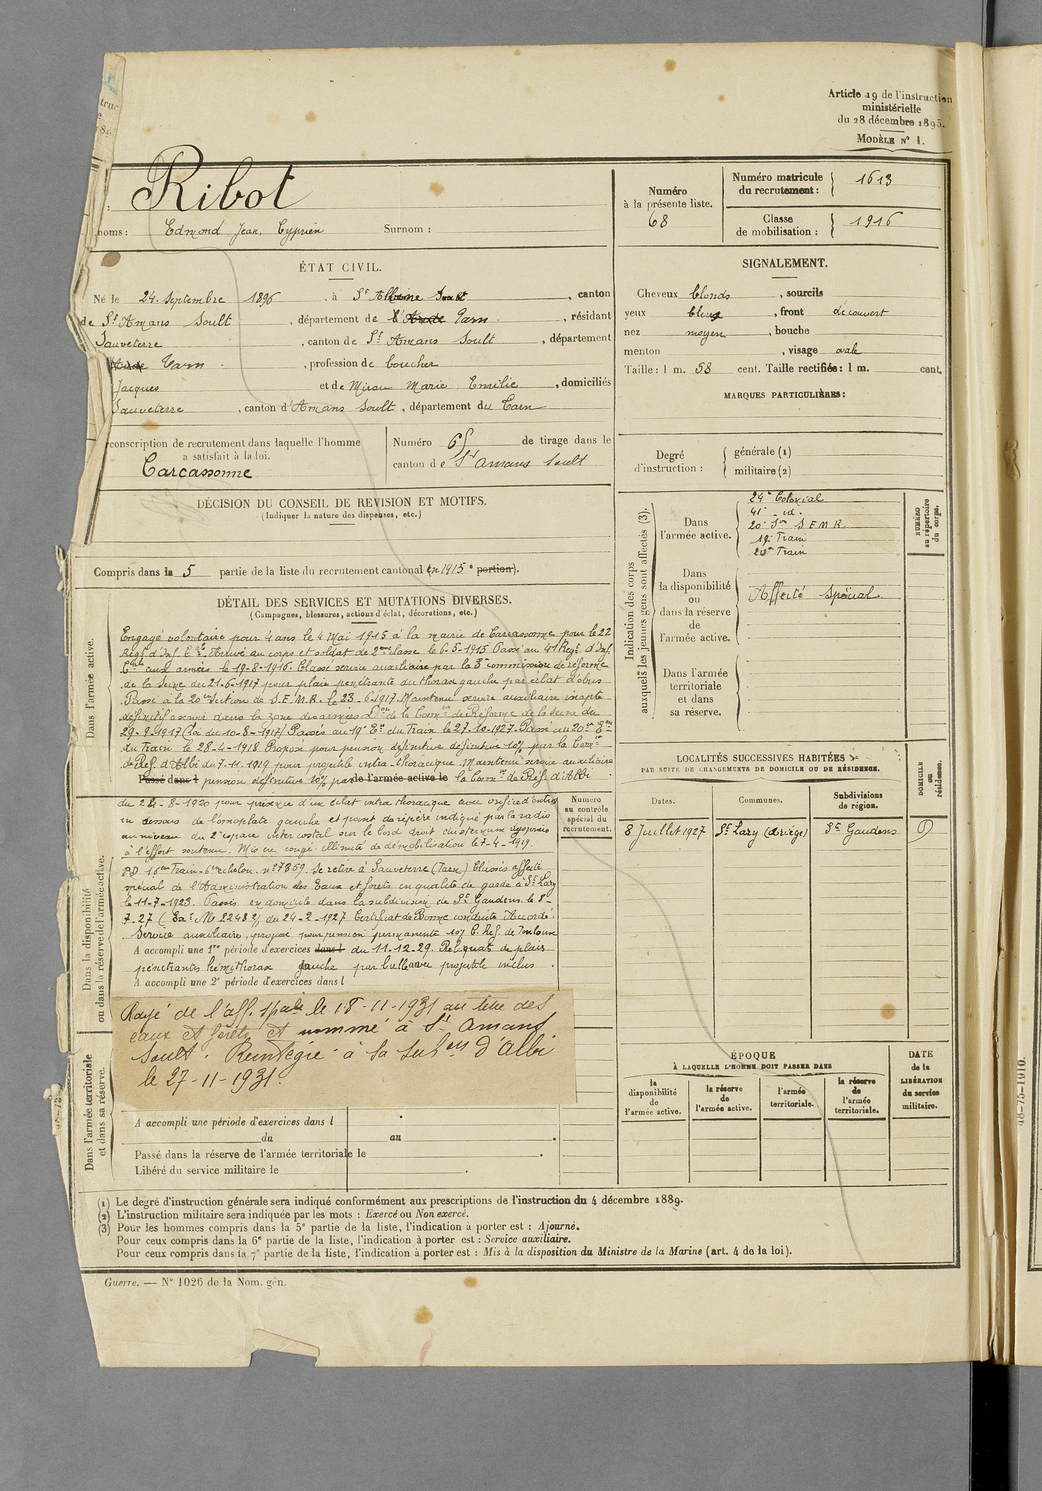 Article 19 de l'instruction
ministérielle
du 28 décembre 1895.
MODÈLE N° 1.
Ribot
noms : Edmond Jean, Cyprien Surnom :
Numéro
à la présente liste.
68
Numéro matricule
du recrutement : 1613
Classe
de mobilisation : 1916
ÉTAT CIVIL.
Né le 24 Septembre 1896, à St , canton
de St Amans Soult, département de l'Aude Tarn, résidant
Sauveterre, canton de St Amans Soult, département
Aude Tarn, profession de boucher
Jacques et de Mirau Marie Emilie, domiciliés
Sauveterre, canton d'Amans Soult, département du Tarn
SIGNALEMENT.
Cheveux blonds, sourcils
yeux bleus, front découvert
nez moyen, bouche
menton , visage ovale
Taille : 1 m. 58 cent. Taille rectifiée : 1 m. cent.
MARQUES PARTICULIÈRES :
conscription de recrutement dans laquelle l'homme
a satisfait à la loi.
Carcassonne
Numéro 65 de tirage dans le
canton de St Amans Soult
Degré
d'instruction :
générale (1)
militaire (2)
DÉCISION DU CONSEIL DE REVISION ET MOTIFS.
(Indiquer la nature des dispenses, etc.)
Compris dans la 5 partie de la liste du recrutement cantonal en 1915 (e portion).
Indication des corps
auxquels les jeunes gens sont affectés (3).
Dans
l'armée active.
24e Colonial
41e id.
20e Son S.E.M.R.
19e Train
20e Train
NUMÉRO
au répertoire
du corps.
Dans
la disponibilité
ou
dans la réserve
de
l'armée active.
Affecté spécial
Dans l'armée
territoriale
et dans
sa réserve.
DÉTAIL DES SERVICES ET MUTATIONS DIVERSES.
(Campagnes, blessures, actions d'éclat, décorations, etc.)
Dans l'armée active.
Engagé volontaire pour 4 ans le 4 Mai 1915 à la mairie de Carcassonne pour le 22
Régt d'Inf. Cle. Arrivé au corps et soldat de 2eme classe le 6-5-1915 Passé au 41 Régt d'Inf.
Cle aux armées le 19-8-1916. Classé service auxiliaire par la 3e commission de réforme
de la Seine du 21-6-1917 pour plaie pénétrante du thorax gauche par éclat d'obus
Passé à la 20e Section de S.E.M.R. le 23-6-1917. Maintenu service auxiliaire inapte
définitif à servir dans la zone des armées Don de la Comon de Réforme de la Seine du
29-9-1917 (loi du 10-8-1917) Passé au 19e Eon du Train le 27-10-1927. Passé au 20e Eon
du Train le 28-4-1918 Proposé pour pension définitive définitive 10% par la Comon
de Réf. d'Albi du 7-11-1919 pour projectile intra-thoracique. Maintenu service auxiliaire
Passé dans l pension définitive 10% par de l'armée active le la Comon de Réf. d'Albi
du 24-8-1920 pour présence d'un éclat intra thoracique avec orifice d'entrée
en dessous de l'omoplate gauche et point de repère indiqué par la radio
au niveau du 2e espace inter costal sur le bord droit du sternum dyspnée
à l'effort soutenu. Mis en congé illimité de démobilisation le 7-4-1919.
Numéro
au contrôle
spécial du
recrutement.
Dans la disponibilité
ou dans la réserve de l'armée active.
16me Train 6me échelon n° 7359. Se retire à Sauveterre (Tarn) Classé affecté
spécial de l'Administration des Eaux et forêts en qualité de garde à St Lary
le 11-7-1923. Passé en domicile dans la subdivision de St Gaudens le 8-
7-27 ( M 2248 du 24-2-1927 Certificat de Bonne conduite Accordé.
Service auxiliaire, proposé pour pension permanente 10% C. Réf. de Toulouse
A accompli une 1re période d'exercices dans l du 11-12-29. Reliquat de plaie
pénétrante hémithorax gauche par balle avec projectile inclus.
A accompli une 2e période d'exercices dans l
Rayé de l'aff. spale le 18-11-1931 au titre des
eaux et forêts et nommé à St Amans
Soult. Réintégré à la subon d'Albi
le 27-11-1931.
Dans l'armée territoriale
et dans sa réserve.
A accompli une période d'exercices dans l
du au .
Passé dans la réserve de l'armée territoriale le .
Libéré du service militaire le .
LOCALITÉS SUCCESSIVES HABITÉES
PAR SUITE DE CHANGEMENTS DE DOMICILE OU DE RÉSIDENCE.
Dates. Communes. Subdivisions
de région.
DOMICILE
ou
résidence.
8 Juillet 1927 St Lary (Ariège) St Gaudens D
ÉPOQUE
À LAQUELLE L'HOMME DOIT PASSER DANS
la
disponibilité
de
l'armée active.
la réserve
de
l'armée active.
l'armée
territoriale.
la réserve
de
l'armée
territoriale.
DATE
de la
LIBÉRATION
du service
militaire.
(1) Le degré d'instruction générale sera indiqué conformément aux prescriptions de l'instruction du 4 décembre 1889.
(2) L'instruction militaire sera indiquée par les mots : Exercé ou Non exercé.
(3) Pour les hommes compris dans la 5e partie de la liste, l'indication à porter est : Ajourné.
Pour ceux compris dans la 6e partie de la liste, l'indication à porter est : Service auxiliaire.
Pour ceux compris dans la 7e partie de la liste, l'indication à porter est : Mis à la disposition du Ministre de la Marine (art. 4 de la loi).
Guerre. — N° 1026 de la Nom. gén.
48-75-1910.